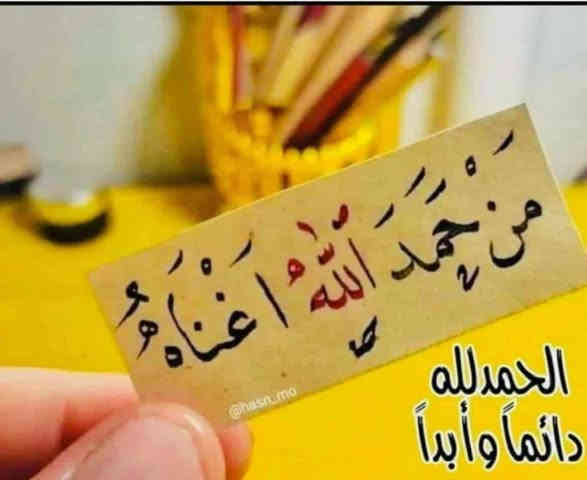 مَنْ حَمِدَ اللّٰهُ اَغْنَاهُ
@hasn_mo
الحمدلله
دائماً وأبداً